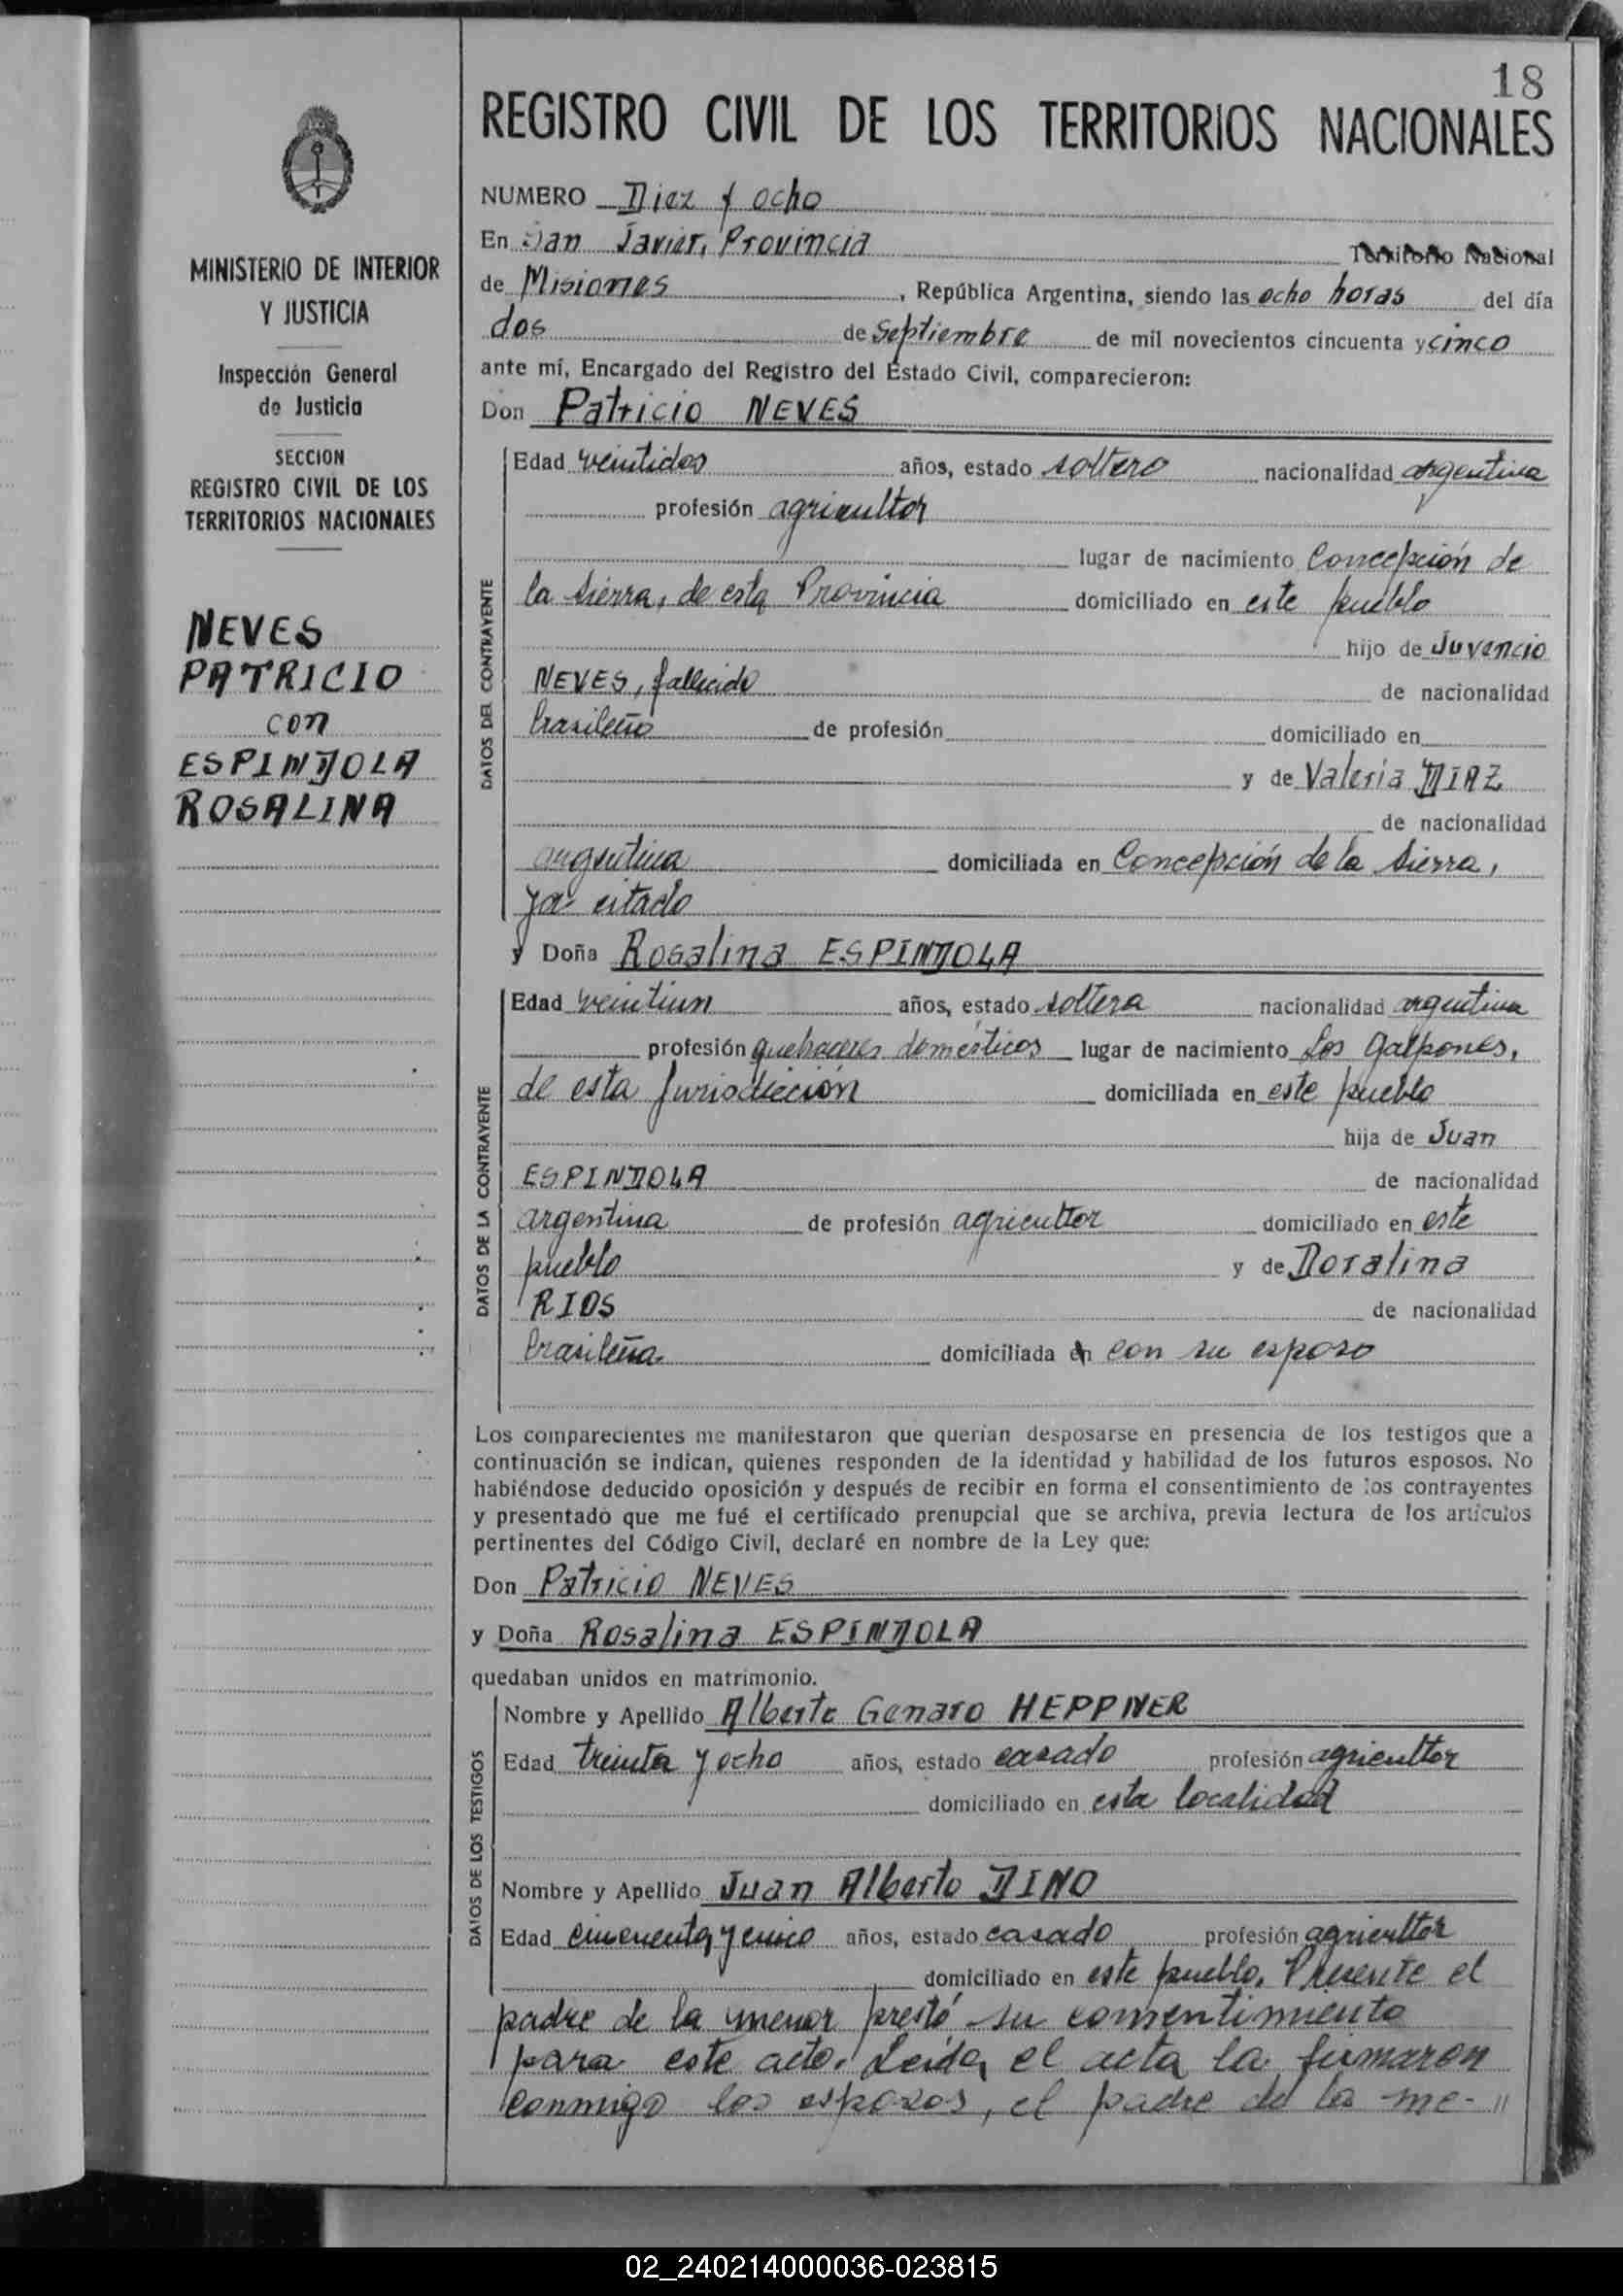 18
REGISTRO CIVIL DE LOS TERRITORIOS NACIONALES
MINISTERIO DE INTERIOR
Y JUSTICIA
Inspección General
de Justicia
SECCION
REGISTRO CIVIL DE LOS
TERRITORIOS NACIONALES
NEVES
PATRICIO
con
ESPINDOLA
ROSALINA
NUMERO Diez y ocho
En San Javier, Provincia Territorio Nacional
de Misiones, República Argentina, siendo las ocho horas del día
dos de Septiembre de mil novecientos cincuenta y cinco
ante mí, Encargado del Registro del Estado Civil, comparecieron:
Don Patricio NEVES
DATOS DEL CONTRAYENTE
Edad veintidos años, estado soltero nacionalidad argentina
profesión agricultor
lugar de nacimiento Concepción de
la Sierra, de esta Provincia domiciliado en este pueblo
hijo de Juvencio
NEVES, fallecido de nacionalidad
brasileño de profesión domiciliado en
y de Valeria DIAZ
de nacionalidad
argentina domiciliada en Concepción de la Sierra,
ya citado
y Doña Rosalina ESPINDOLA
DATOS DE LA CONTRAYENTE
Edad veintiun años, estado soltera nacionalidad argentina
profesión quehaceres domésticos lugar de nacimiento Los Galpones,
de esta Jurisdicción domiciliada en este pueblo
hija de Juan
ESPINDOLA de nacionalidad
argentina de profesión agricultor domiciliado en este
pueblo y de Doralina
RIOS de nacionalidad
brasileña domiciliada en con su esposo
Los comparecientes me manifestaron que querían desposarse en presencia de los testigos que a
continuación se indican, quienes responden de la identidad y habilidad de los futuros esposos. No
habiéndose deducido oposición y después de recibir en forma el consentimiento de los contrayentes
y presentado que me fué el certificado prenupcial que se archiva, previa lectura de los artículos
pertinentes del Código Civil, declaré en nombre de la Ley que:
Don Patricio NEVES
y Doña Rosalina ESPINDOLA
quedaban unidos en matrimonio.
DATOS DE LOS TESTIGOS
Nombre y Apellido Alberto Genaro HEPPNER
Edad treinta y ocho años, estado casado profesión agricultor
domiciliado en esta localidad
Nombre y Apellido Juan Alberto DINO
Edad cincuenta y cinco años, estado casado profesión agricultor
domiciliado en este pueblo. Presente el
padre de la menor prestó su consentimiento
para este acto. Leída el acta la firmaron
conmigo los esposos, el padre de la me-//
02_240214000036-023815